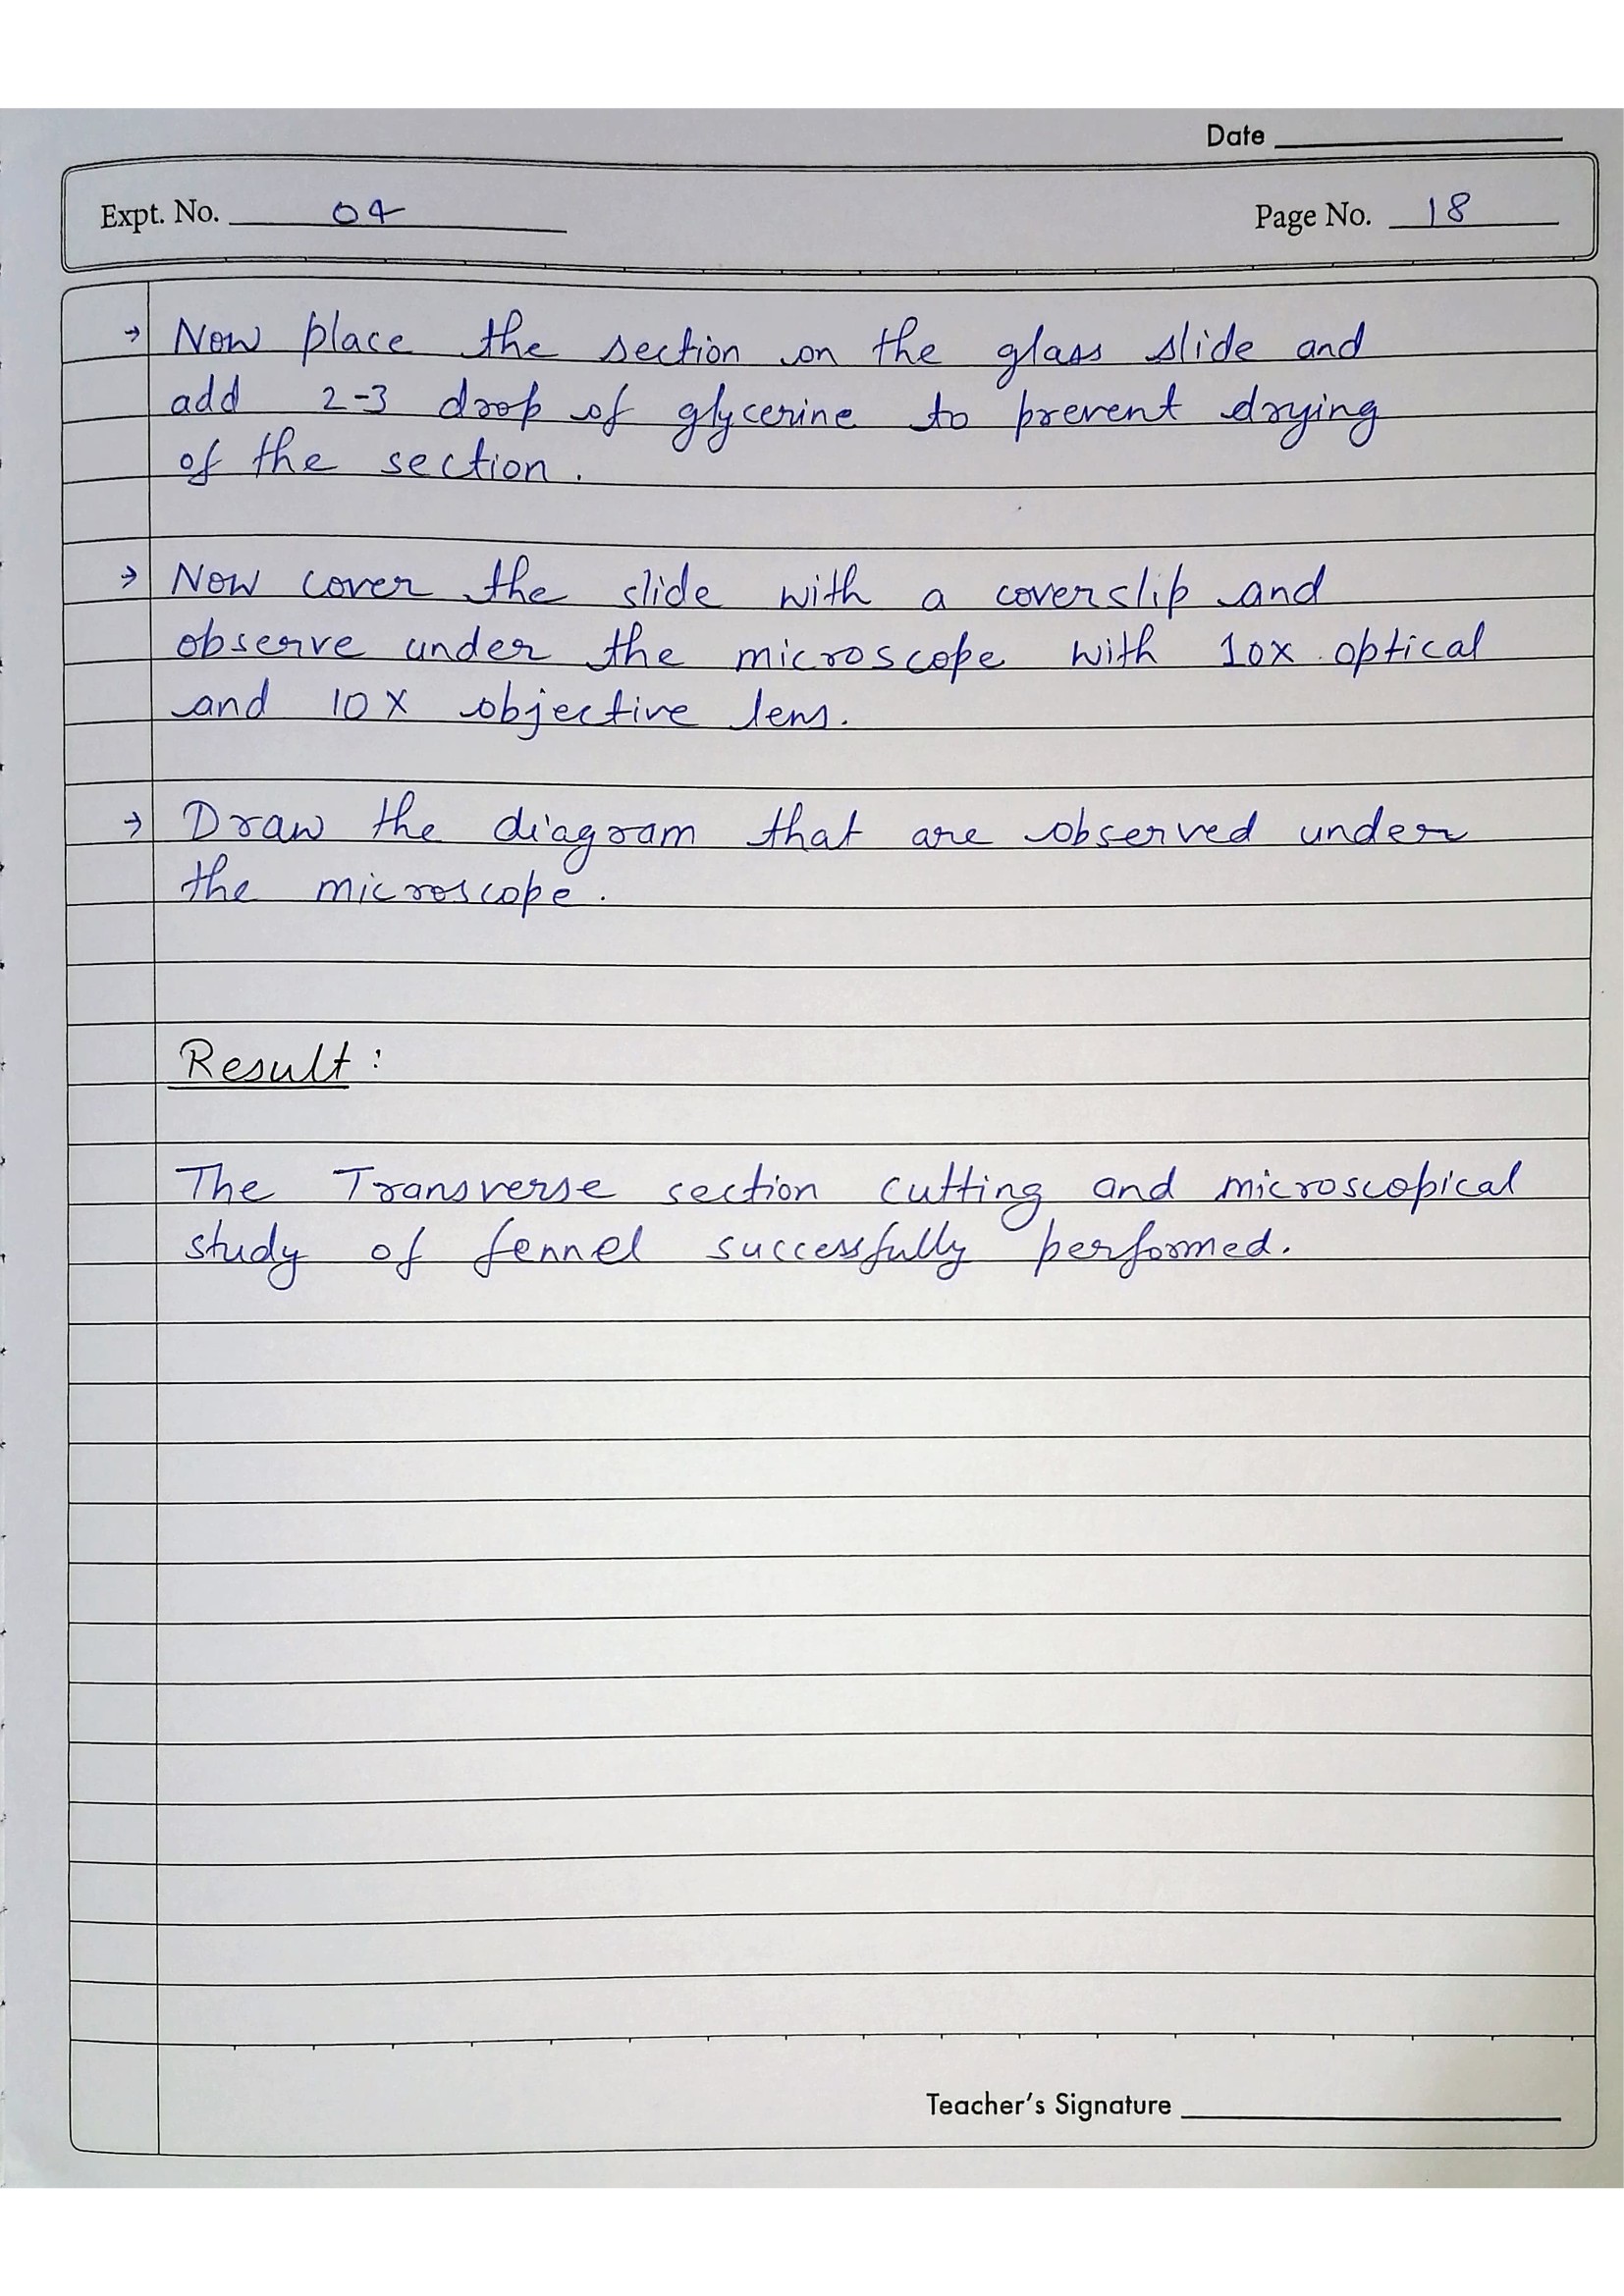 Date
Expt. No. 04
Page No. 18
→ Now place the section on the glass slide and
add 2-3 drop of glycerine to prevent drying
of the section.
→ Now cover the slide with a coverslip and
observe under the microscope with 10x optical
and 10X objective lens.
→ Draw the diagram that are observed under
the microscope.
Result:
The Transverse section cutting and microscopical
study of fennel successfully performed.
Teacher's Signature